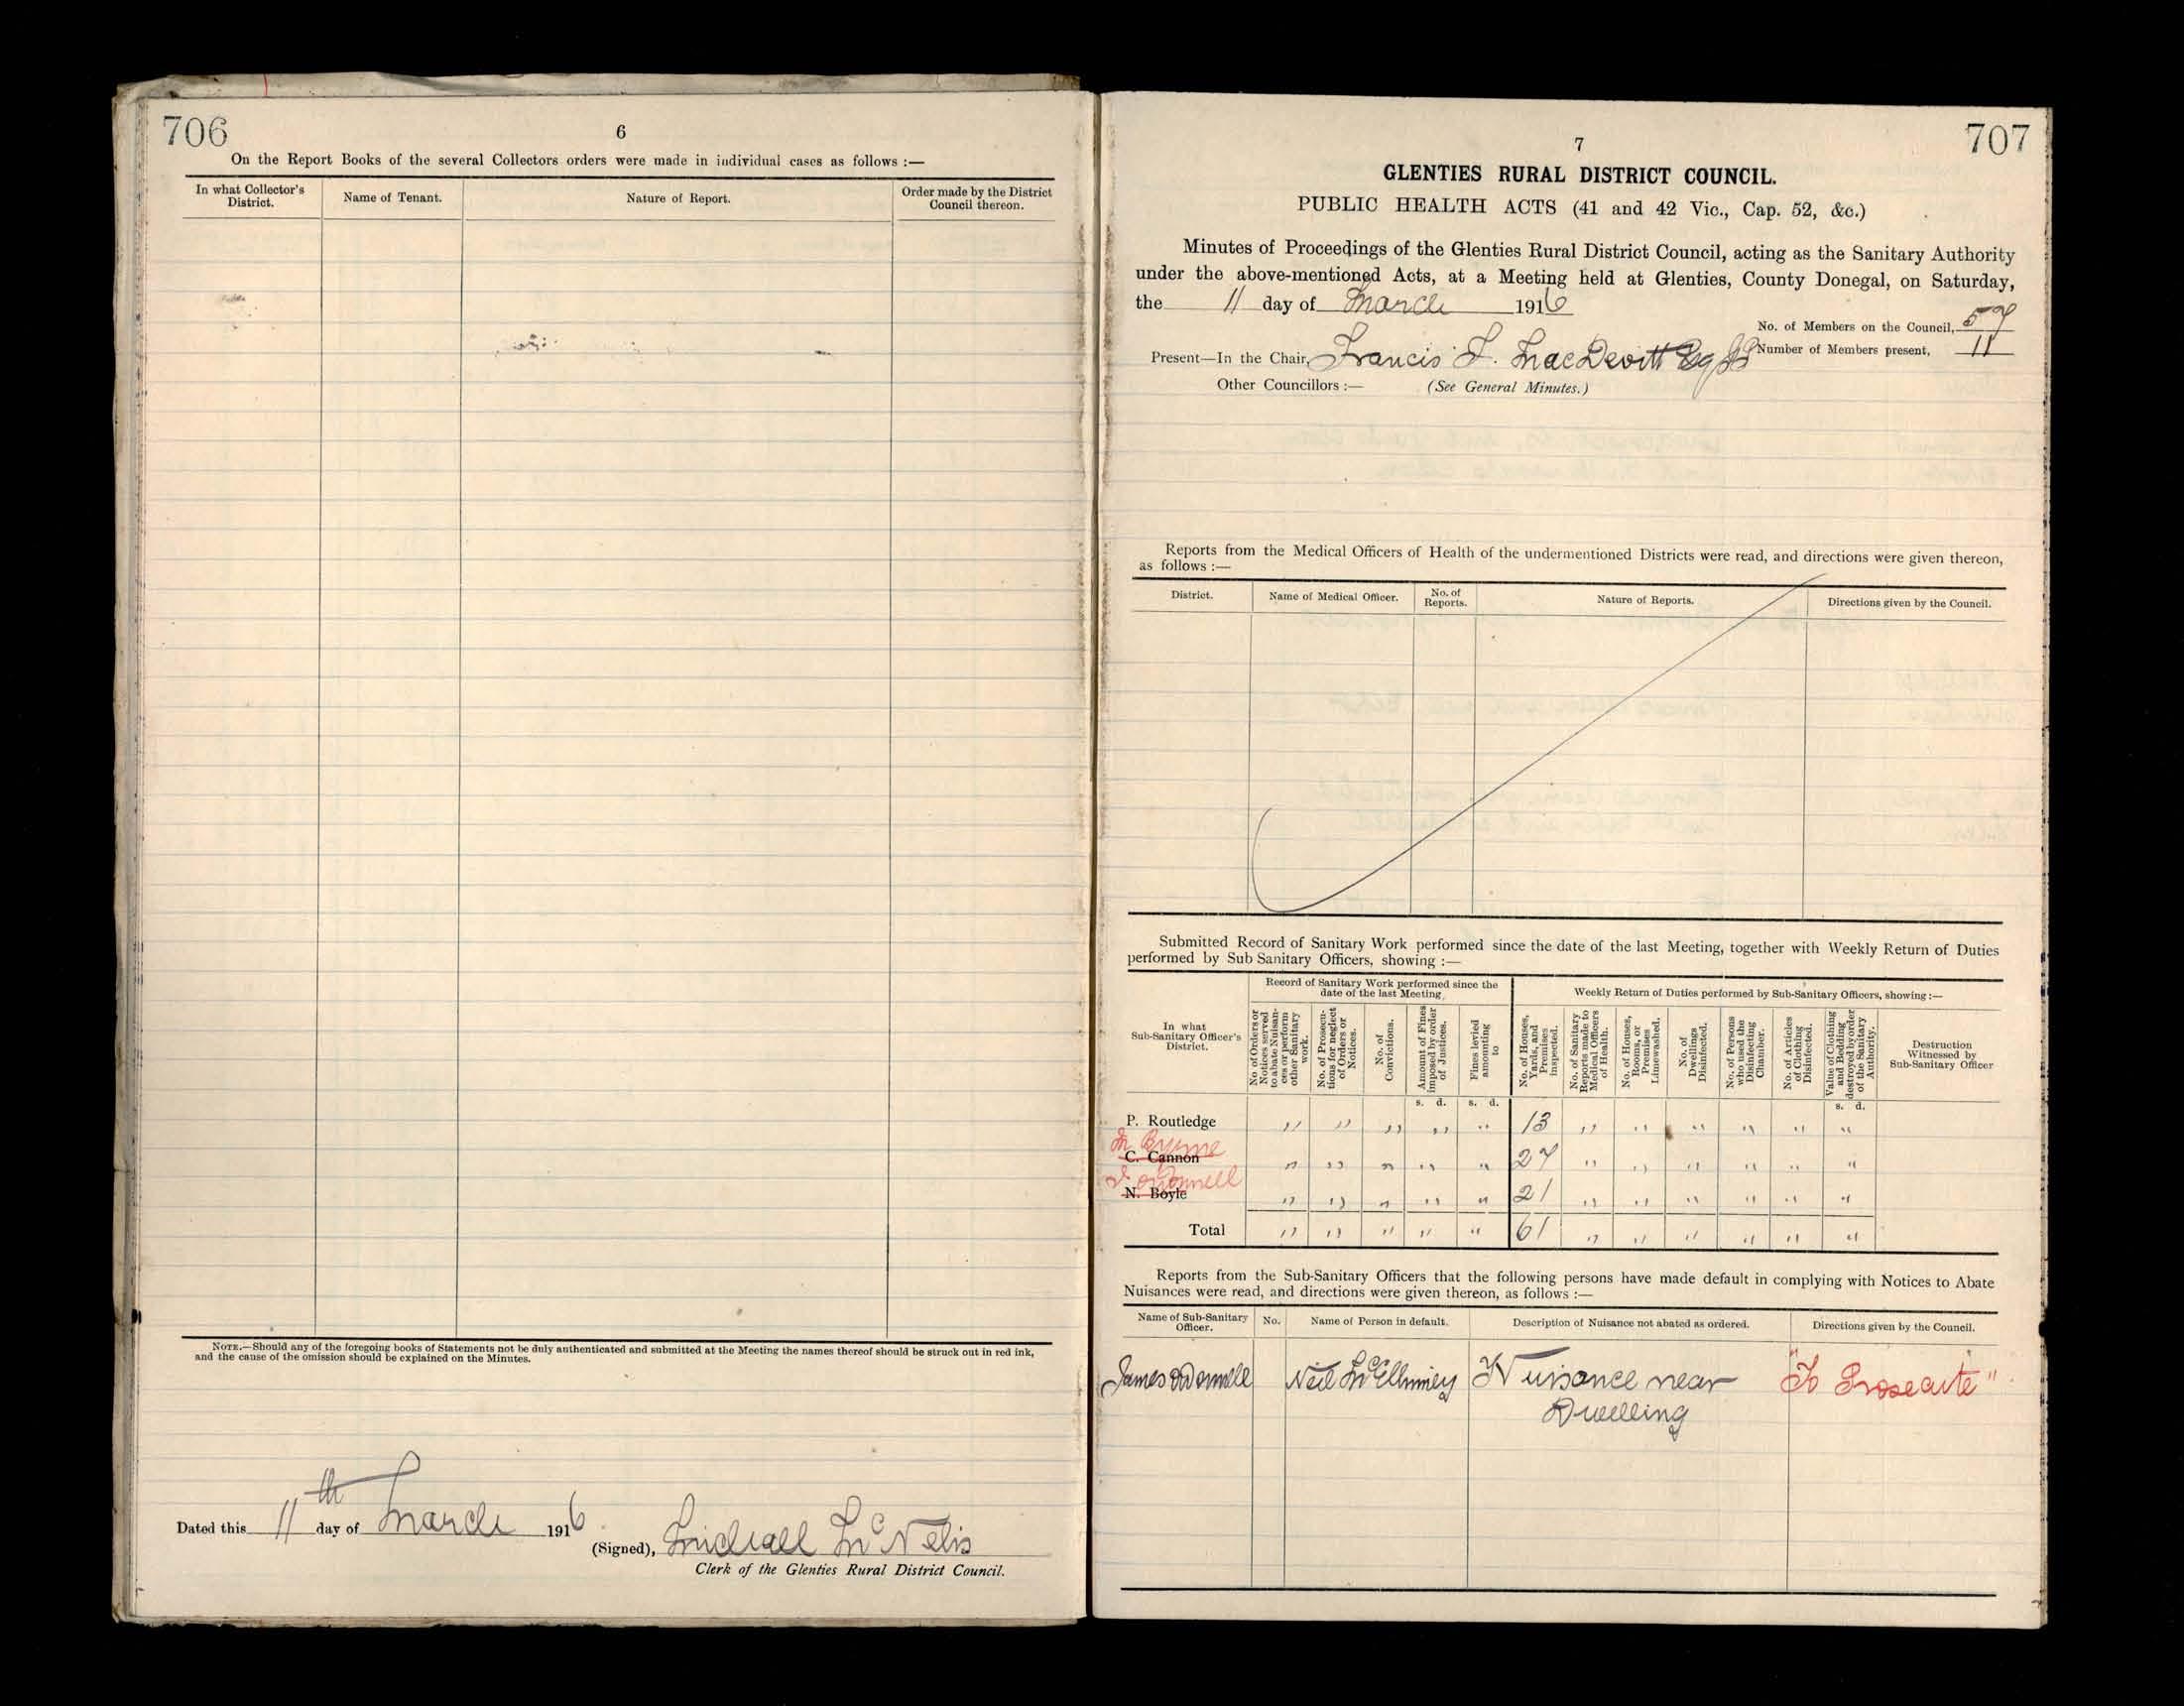 706
6
On the Report Books of the several Collectors orders were made in individual cases as follows :—
In what Collector's District.
Name of Tenant.
Nature of Report.
Order made by the District Council thereon.
NOTE.—Should any of the foregoing books of Statements not be duly authenticated and submitted at the Meeting the names thereof should be struck out in red ink,
and the cause of the omission should be explained on the Minutes.
Dated this 11th day of March 1916
(Signed), Michael McNelis
Clerk of the Glenties Rural District Council.
707
7
GLENTIES RURAL DISTRICT COUNCIL.
PUBLIC HEALTH ACTS (41 and 42 Vic., Cap. 52, &c.)
Minutes of Proceedings of the Glenties Rural District Council, acting as the Sanitary Authority
under the above-mentioned Acts, at a Meeting held at Glenties, County Donegal, on Saturday,
the 11 day of March 1916
No. of Members on the Council, 57
Present—In the Chair, Francis J. MacDevitt Esq JP Number of Members present, 11
Other Councillors :— (See General Minutes.)
Reports from the Medical Officers of Health of the undermentioned Districts were read, and directions were given thereon,
as follows :—
District.
Name of Medical Officer.
No. of Reports.
Nature of Reports.
Directions given by the Council.
Submitted Record of Sanitary Work performed since the date of the last Meeting, together with Weekly Return of Duties
performed by Sub Sanitary Officers, showing :—
In what Sub-Sanitary Officer's District.
Record of Sanitary Work performed since the date of the last Meeting,
Weekly Return of Duties performed by Sub-Sanitary Officers, showing :—
No of Orders or Notices served to abate Nuisances or perform other Sanitary work.
No. of Prosecutions for neglect of Orders or Notices.
No. of Convictions.
Amount of Fines imposed by order of Justices.
Fines levied amounting to
No. of Houses, Yards, and Premises inspected.
No. of Sanitary Reports made to Medical Officers of Health.
No. of Houses, Rooms, or Premises Limewashed.
No. of Dwellings Disinfected.
No. of Persons who used the Disinfecting Chamber.
No. of Articles of Clothing Disinfected.
Value of Clothing and Bedding destroyed by order of the Sanitary Authority.
Destruction Witnessed by Sub-Sanitary Officer
s. d. s. d. s. d.
P. Routledge " " " " " 13 " " " " " "
M Byrne
C. Cannon " " " " " 27 " " " " " "
J. O'Donnell
N. Boyle " " " " " 21 " " " " " "
Total " " " " " 61 " " " " " "
Reports from the Sub-Sanitary Officers that the following persons have made default in complying with Notices to Abate
Nuisances were read, and directions were given thereon, as follows :—
Name of Sub-Sanitary Officer.
No.
Name of Person in default.
Description of Nuisance not abated as ordered.
Directions given by the Council.
James O'Donnell Neil McElhinney Nuisance near "To Prosecute"
Dwelling